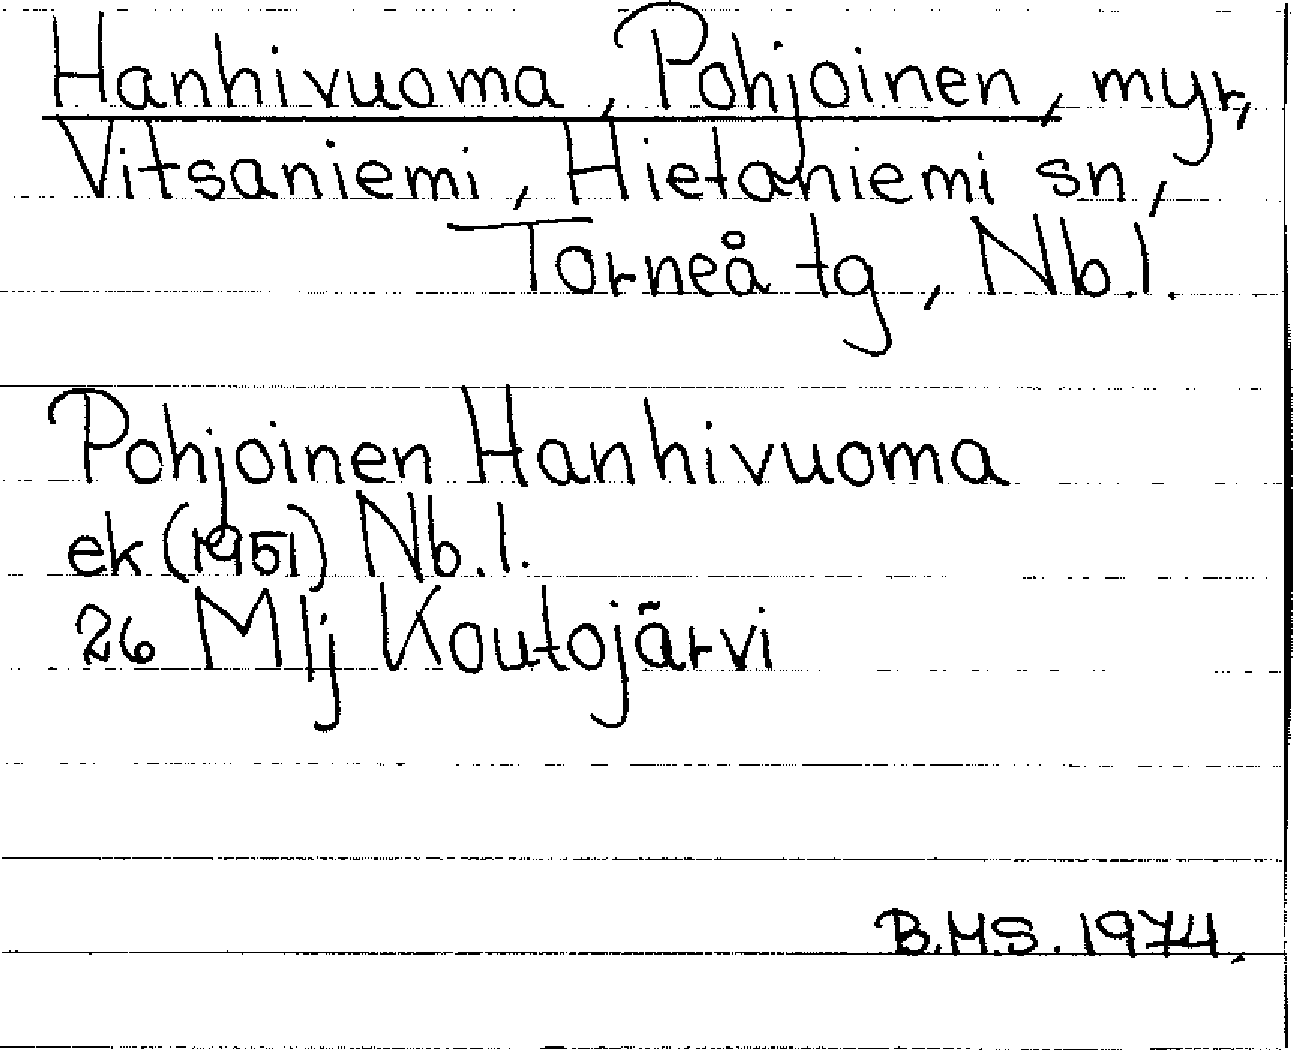 Hanhivuoma, Pohjoinen, myr,
Vitsaniemi, Hietaniemi sn,
Torneå tg, Nb.l.
Pohjoinen Hanhivuoma
ek (1951) Nb.l.
26 M lj Koutojärvi
B.M.S. 1974.